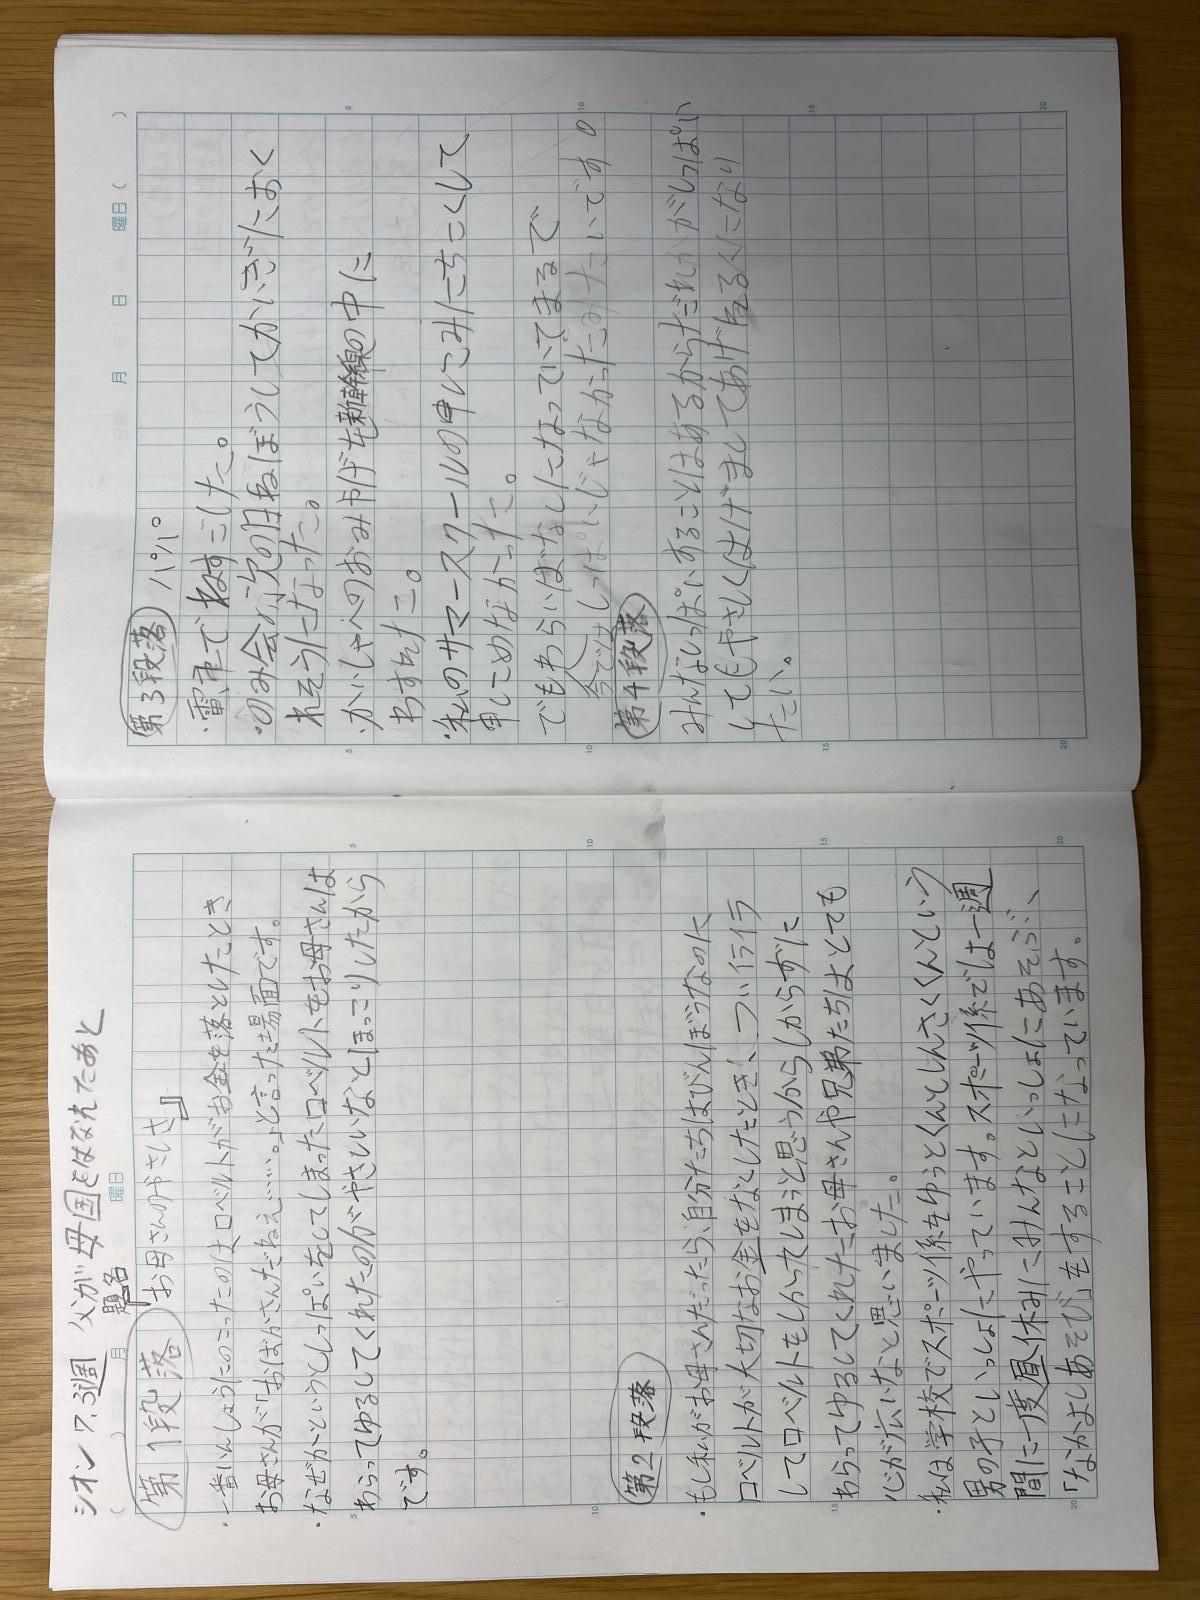 シオン 7.3週 父が母国をはなれたあと
題名
月 曜日
第1段落 お母さんのやさしさ』
・一番いんしょうにのこったのはロベルトがお金を落としたとき
お母さんが「おばかさんだねえ……。」と言った場面です。
・なぜかというとしっぱいをしてしまったロベルトをお母さんは
わらってゆるしてくれたのがやさしいなとほっこりしたから
です。
第2段落
・もし私がお母さんだったら、自分たちはびんぼうなのに
ロベルトが大切なお金をなくしたとき、つい行イラ
してロベルトをしかってしまうと思うからしからずに
わらってゆるしてくれたお母さんや兄弟たちはとても
心が広いなと思いました。
・私は学校でスポーツ係をゆうとくんとしんさくくんという
男の子といっしょにやっています。スポーツ係では一週
間に一度昼休みにみんなといっしょにあそぶ、
「なかよしあそび」をすることになっています。
月 日 曜日 ( )
第3段落 パパ。
・電車でねすごした。
・のみ会の次の日ねぼうしてかいぎにおく
れそうになった。
・かいしゃへのおみやげを新幹線の中に
わすれた。
・私のサマースクールの申しこみにちこくして
申しこめなかった。
でもわらいばなしになっていてまるで
今ではしっぱいじゃなかったみたいです。
第4段落
みんなしっぱいすることはあるからだれかがしっぱい
してもやさしくはげましてあげる人になり
たい。
5
10
15
20
5
10
15
20
5
10
15
20
5
10
15
20